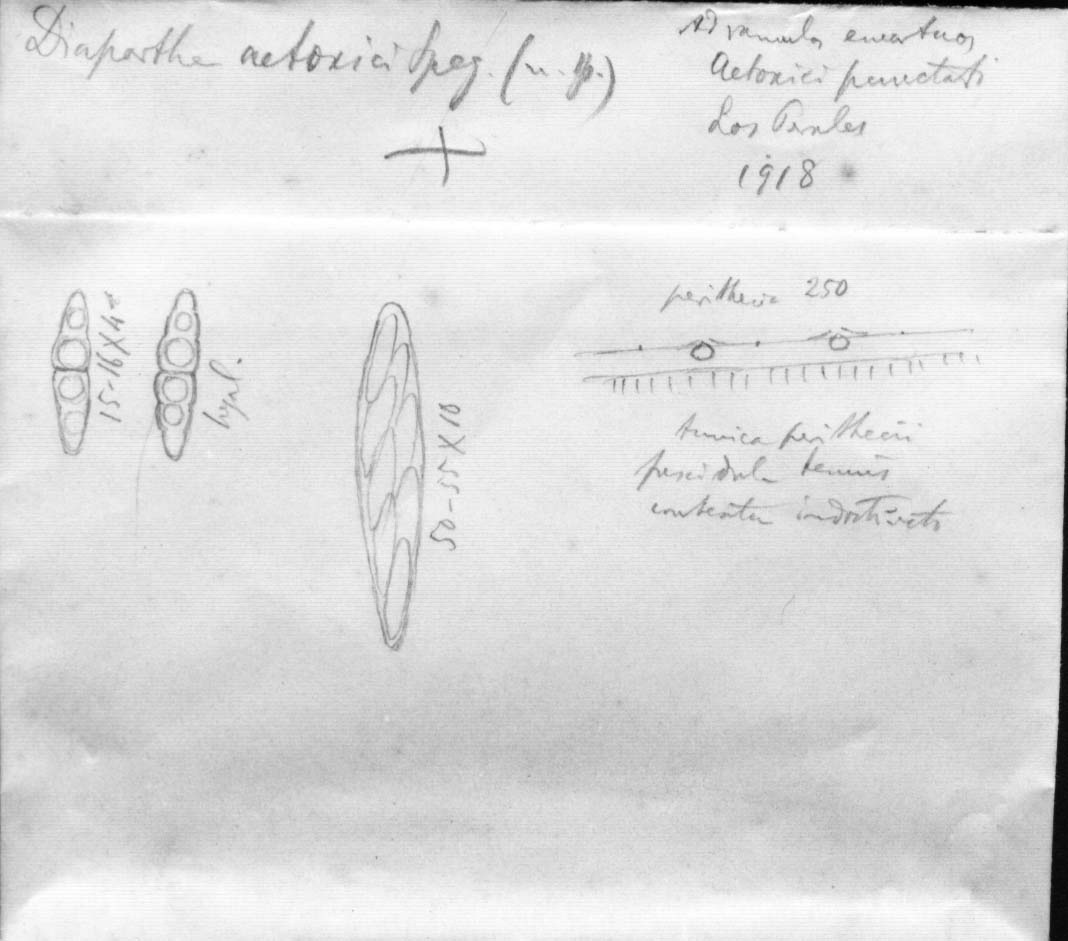 Diaporthe aetoxici Speg. (n. sp.)
Ad ramulos emortuos
Aetoxici punctati
Los Perales
1918
15-16X4
hyal.
50-55X10
perithecia 250
tunica perithecii
tenuis